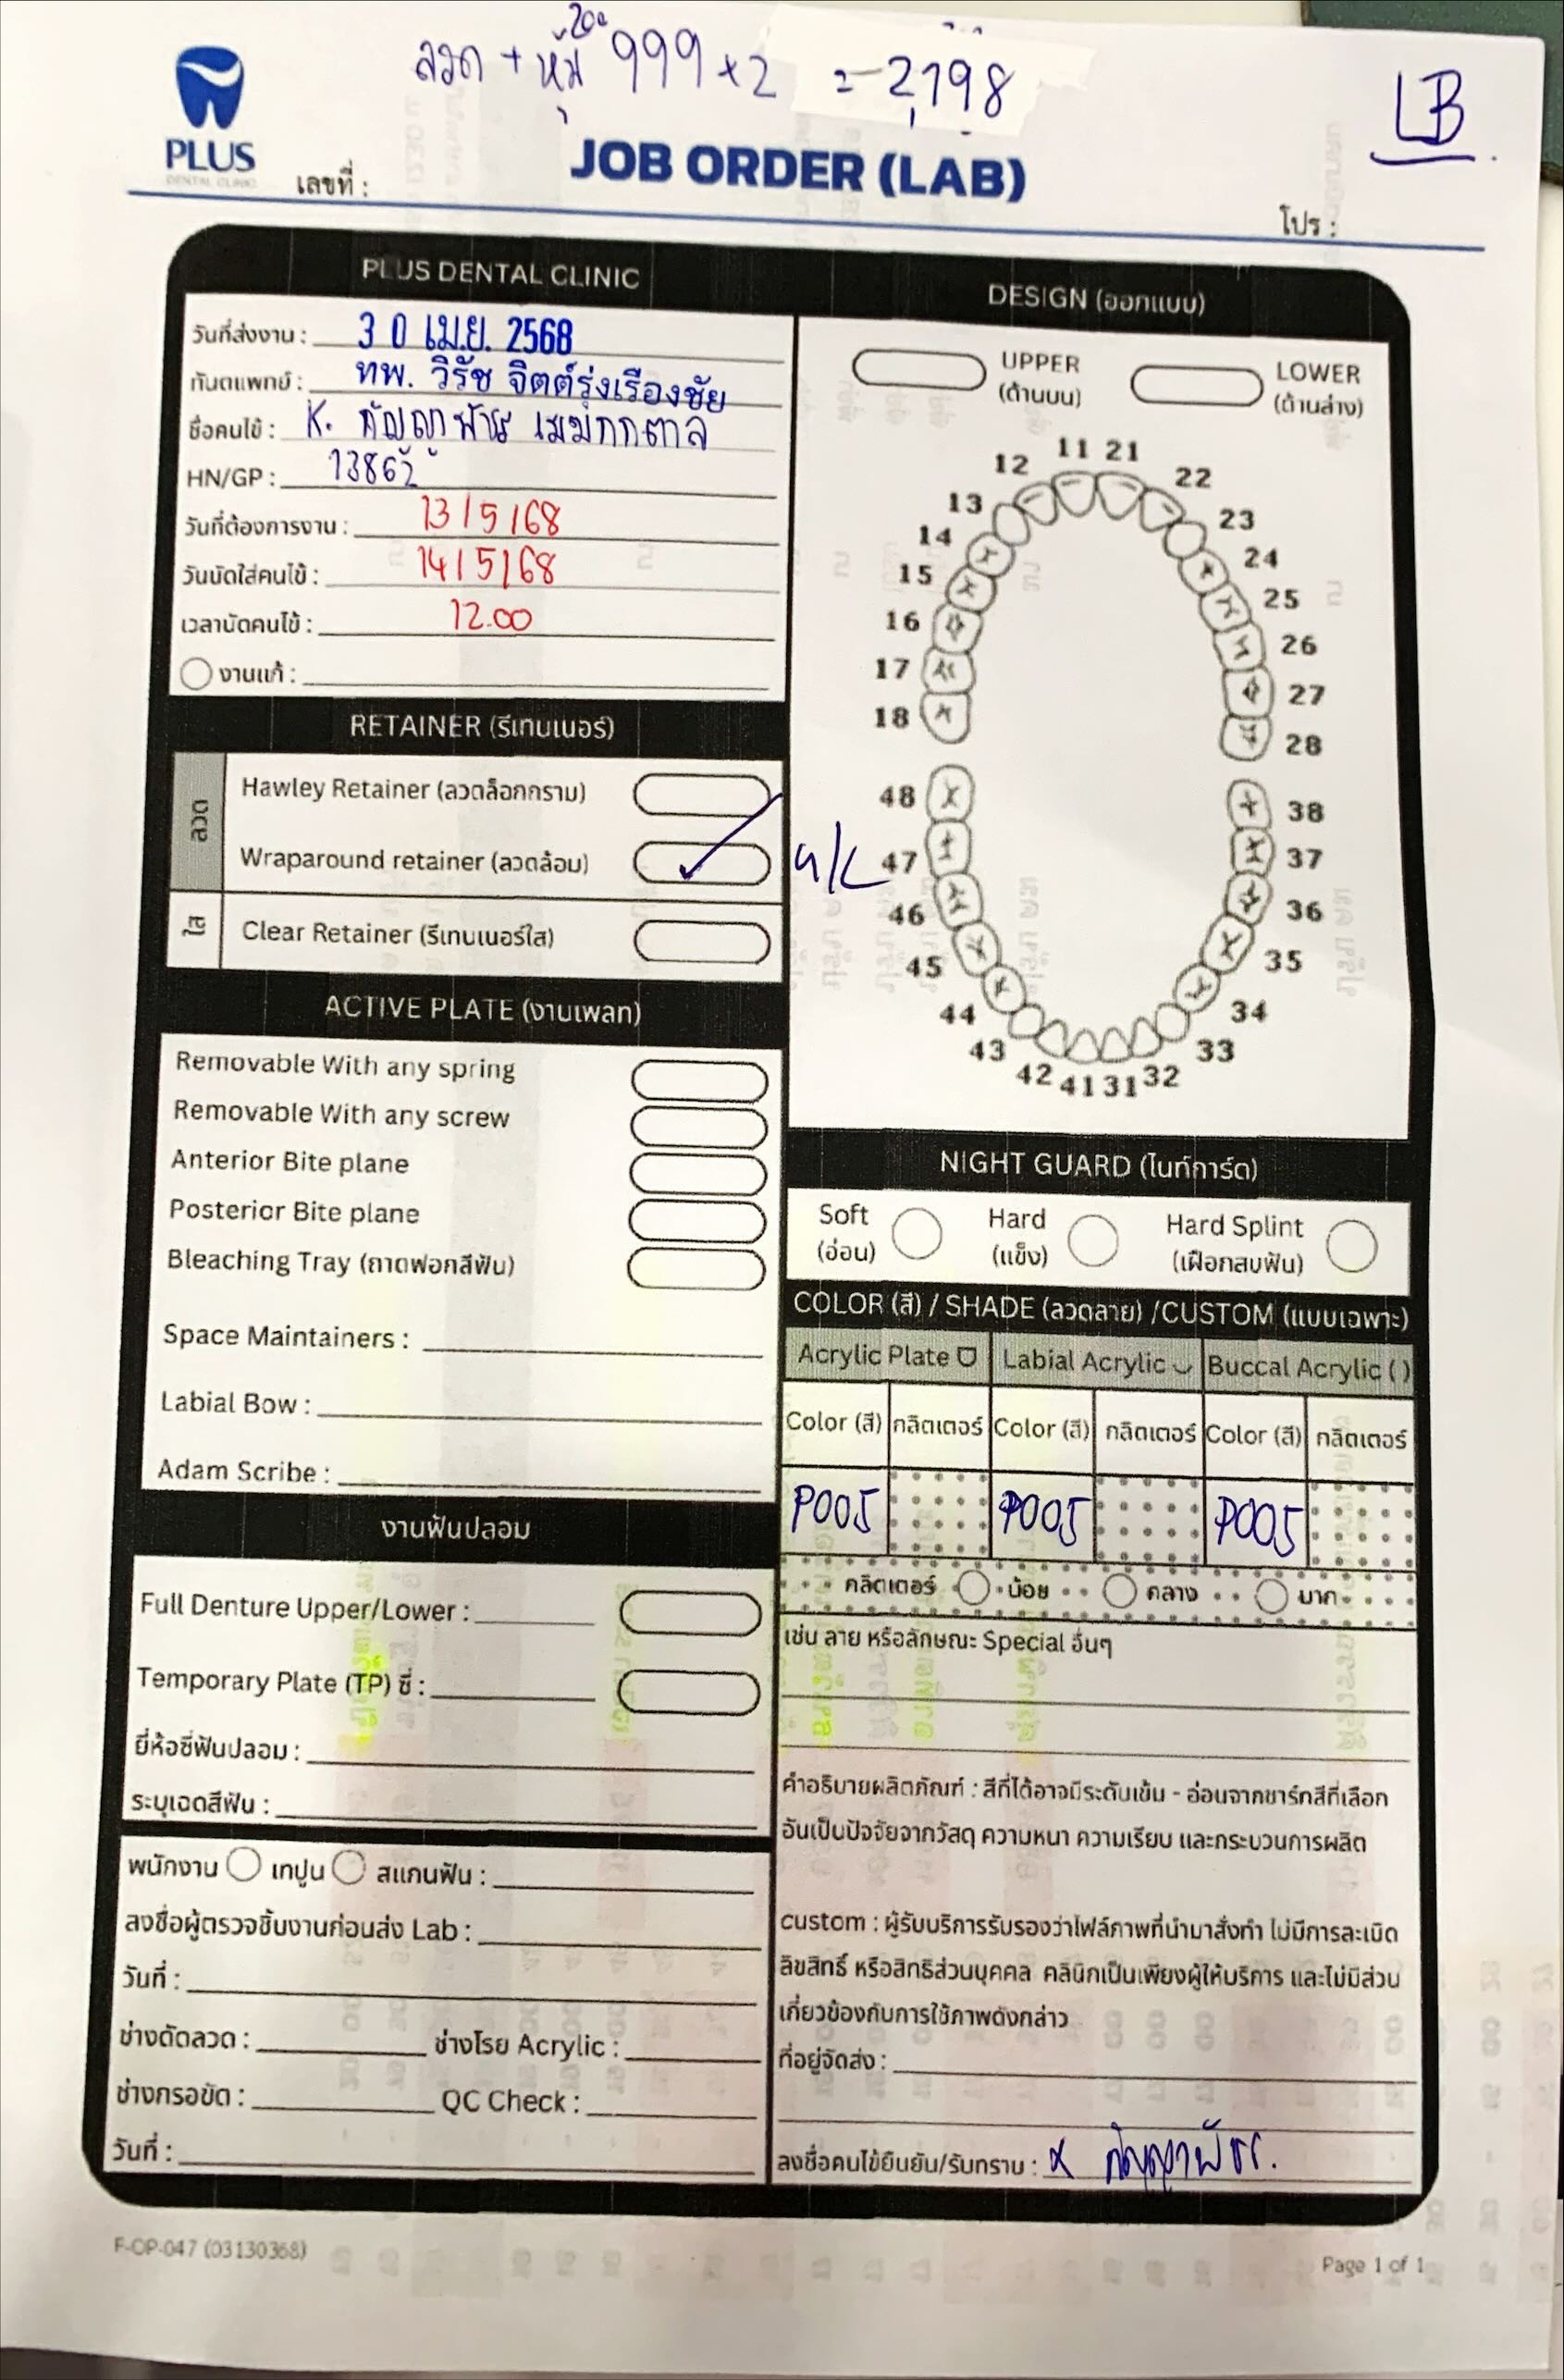 ลวด + หุ้ม 200 999 x 2 = 2,198
LB
PLUS
DENTAL CLINIC
เลขที่ :
JOB ORDER (LAB)
โปร :
PLUS DENTAL CLINIC
วันที่ส่งงาน : 30 เม.ย. 2568
ทันตแพทย์ : ทพ. วิรัช จิตต์รุ่งเรืองชัย
ชื่อคนไข้ : K. กัญญาพัชร
HN/GP : 13862
วันที่ต้องการงาน : 13/5/68
วันนัดใส่คนไข้ : 14/5/68
เวลานัดคนไข้ : 12.00
งานแก้ :
RETAINER (รีเทนเนอร์)
ลวด
Hawley Retainer (ลวดล็อกกราม)
Wraparound retainer (ลวดล้อม) u/L
ใส
Clear Retainer (รีเทนเนอร์ใส)
ACTIVE PLATE (งานเพลท)
Removable With any spring
Removable With any screw
Anterior Bite plane
Posterior Bite plane
Bleaching Tray (ถาดฟอกสีฟัน)
Space Maintainers :
Labial Bow :
Adam Scribe :
งานฟันปลอม
Full Denture Upper/Lower :
Temporary Plate (TP) ซี่ :
ยี่ห้อซี่ฟันปลอม :
ระบุเฉดสีฟัน :
พนักงาน เทปูน สแกนฟัน :
ลงชื่อผู้ตรวจชิ้นงานก่อนส่ง Lab :
วันที่ :
ช่างดัดลวด : ช่างโรย Acrylic :
ช่างกรอขัด : QC Check :
วันที่ :
DESIGN (ออกแบบ)
UPPER
(ด้านบน)
LOWER
(ด้านล่าง)
11 21
12 22
13 23
14 24
15 25
16 26
17 27
18 28
48 38
47 37
46 36
45 35
44 34
43 33
42 41 31 32
NIGHT GUARD (ไนท์การ์ด)
Soft
(อ่อน)
Hard
(แข็ง)
Hard Splint
(เฝือกสบฟัน)
COLOR (สี) / SHADE (ลวดลาย) /CUSTOM (แบบเฉพาะ)
Acrylic Plate Labial Acrylic Buccal Acrylic ( )
Color (สี) กลิตเตอร์ Color (สี) กลิตเตอร์ Color (สี) กลิตเตอร์
P005 P005 P005
กลิตเตอร์ น้อย กลาง มาก
เช่น ลาย หรือลักษณะ Special อื่นๆ
คำอธิบายผลิตภัณฑ์ : สีที่ได้อาจมีระดับเข้ม - อ่อนจากชาร์ทสีที่เลือก
อันเป็นปัจจัยจากวัสดุ ความหนา ความเรียบ และกระบวนการผลิต
custom : ผู้รับบริการรับรองว่าไฟล์ภาพที่นำมาสั่งทำ ไม่มีการละเมิด
ลิขสิทธิ์ หรือสิทธิส่วนบุคคล คลินิกเป็นเพียงผู้ให้บริการ และไม่มีส่วน
เกี่ยวข้องกับการใช้ภาพดังกล่าว
ที่อยู่จัดส่ง :
ลงชื่อคนไข้ยืนยัน/รับทราบ : x กัญญาพัชร.
F-OP-047 (03130368)
Page 1 of 1